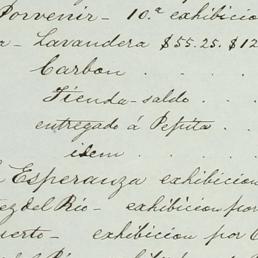 Porvenir - 10.ª exhibicion
- Lavandera $55.25. $12
Carbon . . .
Tienda - saldo . . .
entregado á Pepita . .
idem . . .
Esperanza exhibicion
del Rio - exhibicion por
- exhibicion por